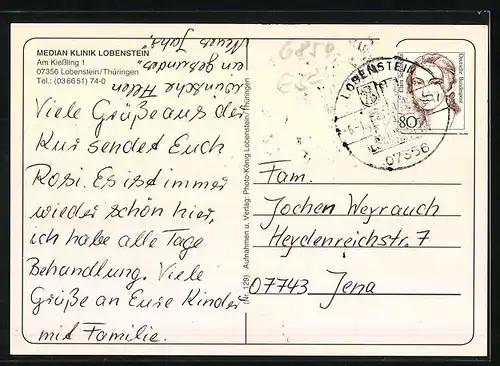 MEDIAN KLINIK LOBENSTEIN
Am Kießling 1
07356 Lobenstein/Thüringen
Tel.: (036651) 74-0
wünsche Allen
ein gesundes
"Neues Jahr"
Viele Grüße aus der
Kur sendet Euch
Rosi. Es ist immer
wieder schön hier,
ich habe alle Tage
Behandlung. Viele
Grüße an Eure Kinder
mit Familie.
(Nr. 129) Aufnahmen u. Verlag: Photo-König Lobenstein/Thüringen
LOBENSTEIN
07356
80
Deutsche Bundespost
Fam.
Jochen Weyrauch
Heydenreichstr. 7
07743 Jena